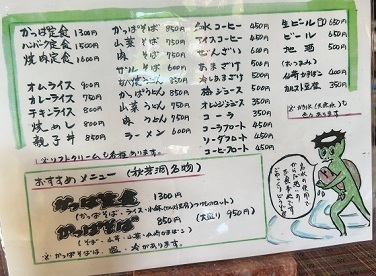 かっぱ定食 1300円
ハンバーグ定食 1500円
焼肉定食 1600円
オムライス 900円
カレーライス 750円
チキンライス 800円
焼めし 800円
親子丼 850円
かっぱそば 850円
山菜そば 750円
肉そば 750円
ザルそば 600円
かっぱうどん 850円
山菜うどん 750円
肉うどん 750円
ラーメン 600円
氷コーヒー 450円
アイスコーヒー 450円
ぜんざい 600円
あまざけ 500円
冷しあまざけ 500円
梅ジュース 500円
オレンジジュース 350円
コーラ 350円
コーラフロート 450円
ソーダフロート 450円
コーヒーフロート 450円
生ビール 650円
ビール 650円
地酒 500円
(おつまみ)
※ソフトクリームも各種あります。
おすすめメニュー (秋芳洞名物)
かっぱ定食 1300円
(かっぱそば、ライス・小鉢
かっぱそば 850円 (大盛り 950円)
(そば、山芋、山菜、
※かっぱそばは、温、冷があります。